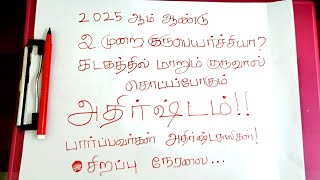 2025 ஆம் ஆண்டு
2 முறை குருபெயர்ச்சியா?
கடகத்தில் மாறும் குருவால்
கொட்டப்போகும்
அதிர்ஷ்டம்!!
பார்ப்பவர்கள் அதிர்ஷ்டசாலிகள்!
சிறப்பு நேரலை...